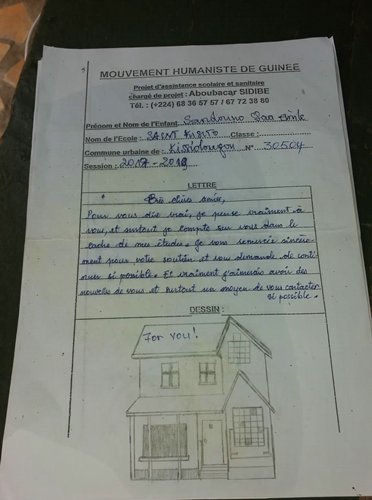 MOUVEMENT HUMANISTE DE GUINEE
Projet d'assistance scolaire et sanitaire
chargé de projet : Aboubacar SIDIBE
Tél. : (+224) 68 36 57 57 / 67 72 38 80
Prénom et Nom de l'Enfant Sandouno Saa
Nom de l'Ecole : SAINT Classe :
Commune urbaine de Kissidougou N° 30504
Session : 2017 - 2018
LETTRE
Très chers amis,
Pour vous dire vrai, je pense vraiment à
vous, et surtout je compte sur vous dans le
cadre de mes études. Je vous remercie sincère-
ment pour votre soutien et vous demande de conti-
nuer si possible. Et vraiment j'aimerais avoir des
nouvelles de vous et surtout un moyen de vous contacter
si possible.
DESSIN :
For you!